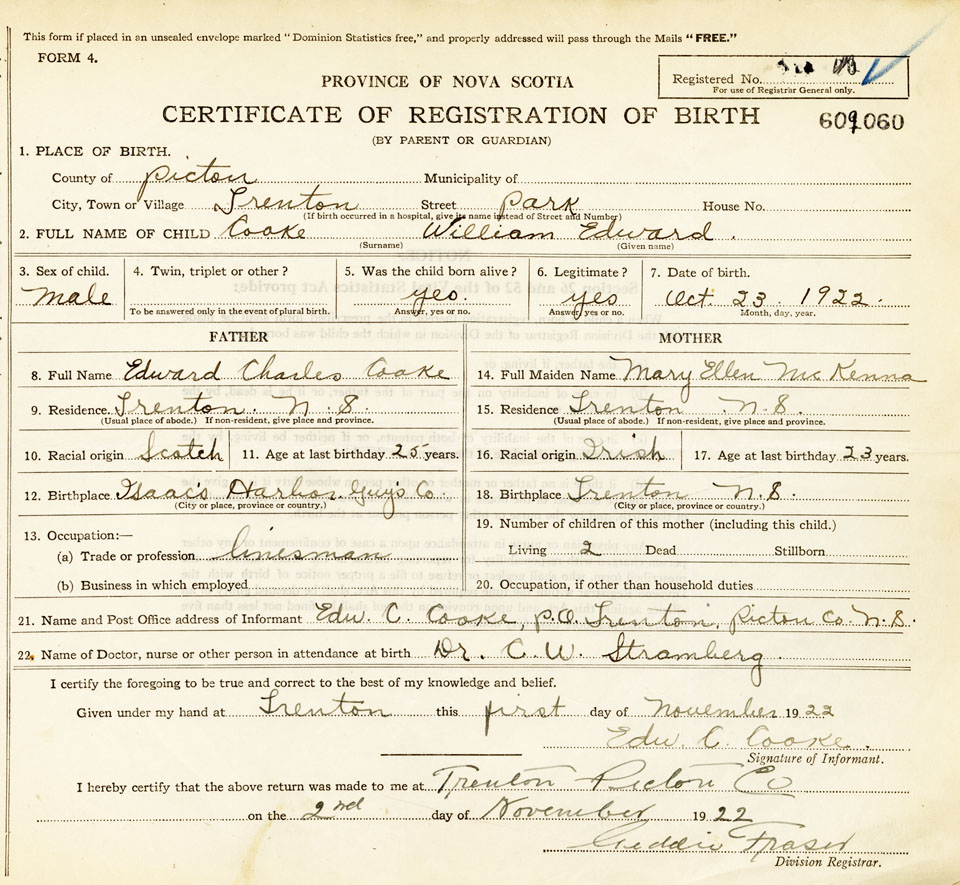 This form if placed in an unsealed envelope marked "Dominion Statistics free," and properly addressed will pass through the Mails "FREE."
FORM 4.
Registered No.
For use of Registrar General only.
PROVINCE OF NOVA SCOTIA
CERTIFICATE OF REGISTRATION OF BIRTH
(BY PARENT OR GUARDIAN)
1. PLACE OF BIRTH.
County of Picton Municipality of
City, Town or Village Trenton Street Park House No.
(If birth occurred in a hospital, give its name instead of Street and Number)
2. FULL NAME OF CHILD Cooke William Edward.
(Surname) (Given name)
3. Sex of child. 4. Twin, triplet or other? 5. Was the child born alive? 6. Legitimate? 7. Date of birth.
Male yes. yes Oct. 23. 1922.
To be answered only in the event of plural birth. Answer, yes or no. Answer, yes or no. Month, day, year.
FATHER MOTHER
8. Full Name Edward Charles Cooke 14. Full Maiden Name Mary Ellen McKenna
9. Residence. Trenton. N.S. 15. Residence Trenton N.S.
(Usual place of abode.) If non-resident, give place and province. (Usual place of abode.) If non-resident, give place and province.
10. Racial origin Scotch 11. Age at last birthday 25 years. 16. Racial origin Irish 17. Age at last birthday 23 years.
12. Birthplace Isaac's Harbor Guy's Co. 18. Birthplace Trenton N.S.
(City or place, province or country.) (City or place, province or country.)
19. Number of children of this mother (including this child.)
13. Occupation:—
(a) Trade or profession linesman Living 2 Dead Stillborn
(b) Business in which employed 20. Occupation, if other than household duties
21. Name and Post Office address of Informant Edw. C. Cooke, P.O. Trenton, Picton Co. N.S.
22. Name of Doctor, nurse or other person in attendance at birth Dr. C. W. Stramberg
I certify the foregoing to be true and correct to the best of my knowledge and belief.
Given under my hand at Trenton this first day of November 1922
Edw. C. Cooke.
Signature of Informant.
I hereby certify that the above return was made to me at Trenton Picton Co
on the 2nd day of November 1922
Fraser
Division Registrar.